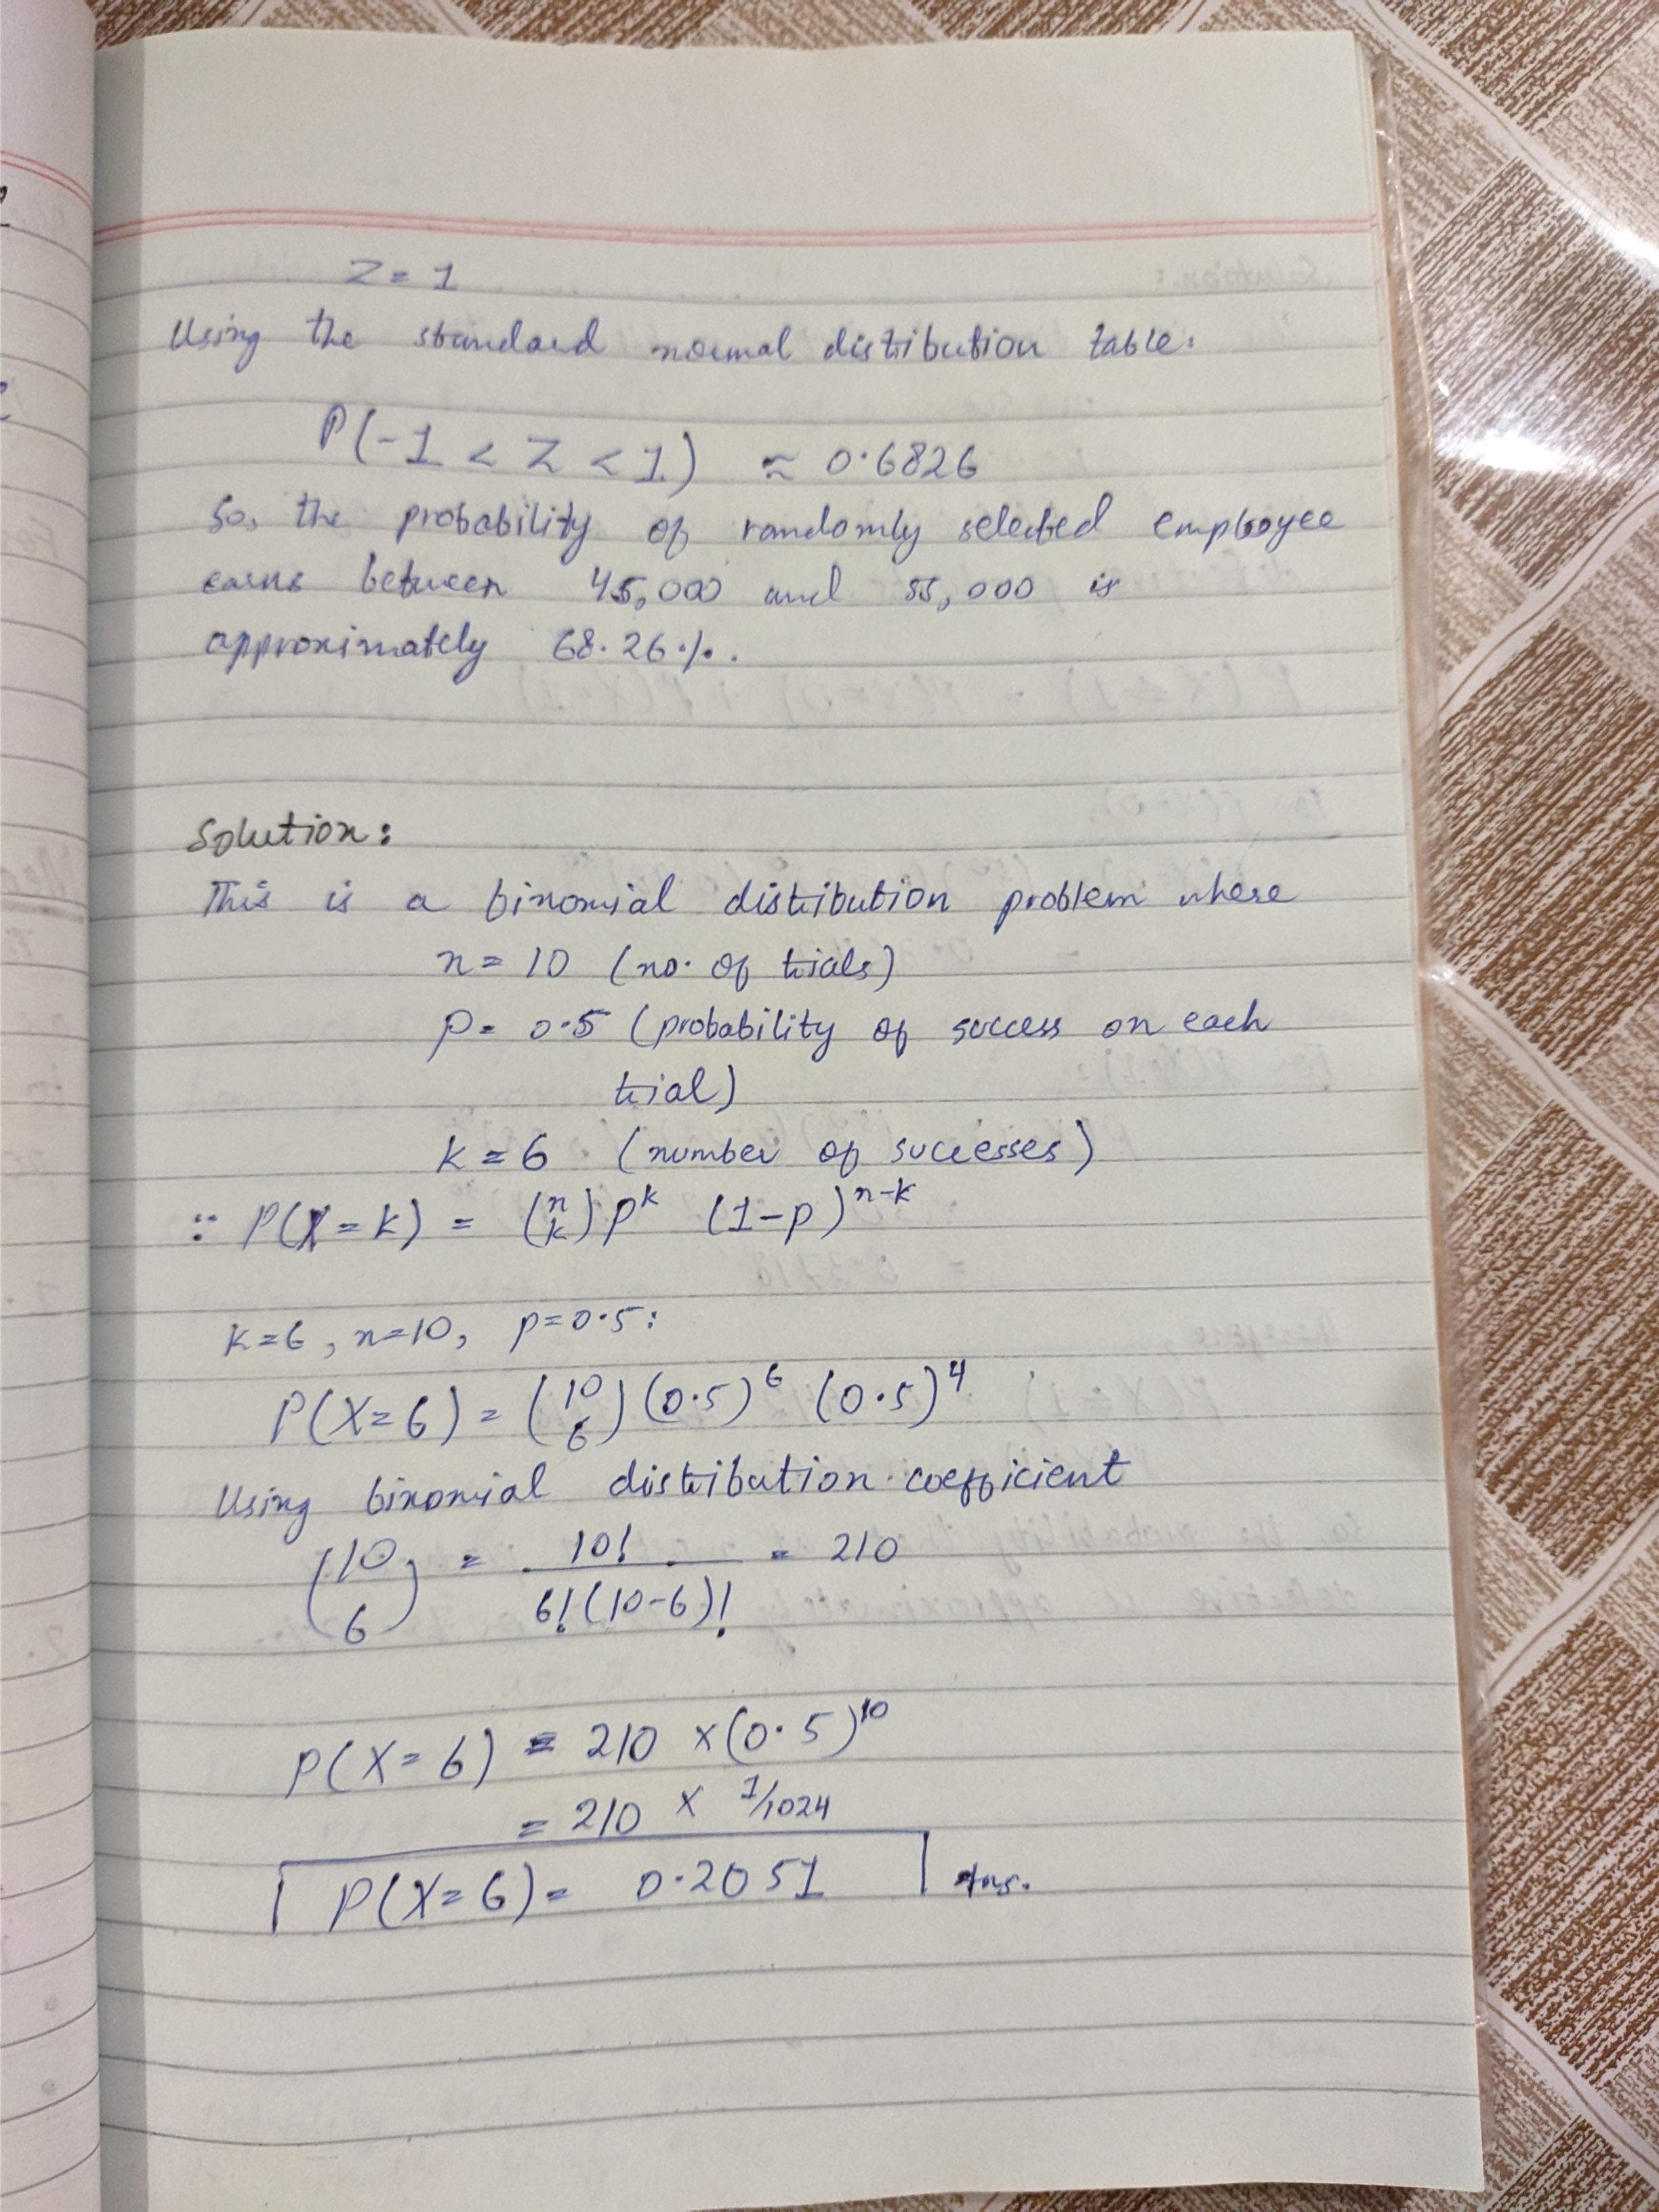 Z = 1
Using the standard normal distribution table:
P(-1 < Z < 1) ≈ 0.6826
So, the probability of randomly selected employee
earns between 45,000 and 55,000 is
approximately 68.26%.
Solution:
This is a binomial distribution problem where
n = 10 (no. of trials)
p = 0.5 (probability of success on each
trial)
k = 6 (number of successes)
∵ P(X = k) = (n k) p^k (1-p)^n-k
k=6, n=10, p=0.5:
P(X=6) = (10 6) (0.5)^6 (0.5)^4
Using binomial distribution coefficient
(10 6) = 10! / 6!(10-6)! = 210
P(X=6) = 210 × (0.5)^10
= 210 × 1/1024
P(X=6) = 0.2051 Ans.